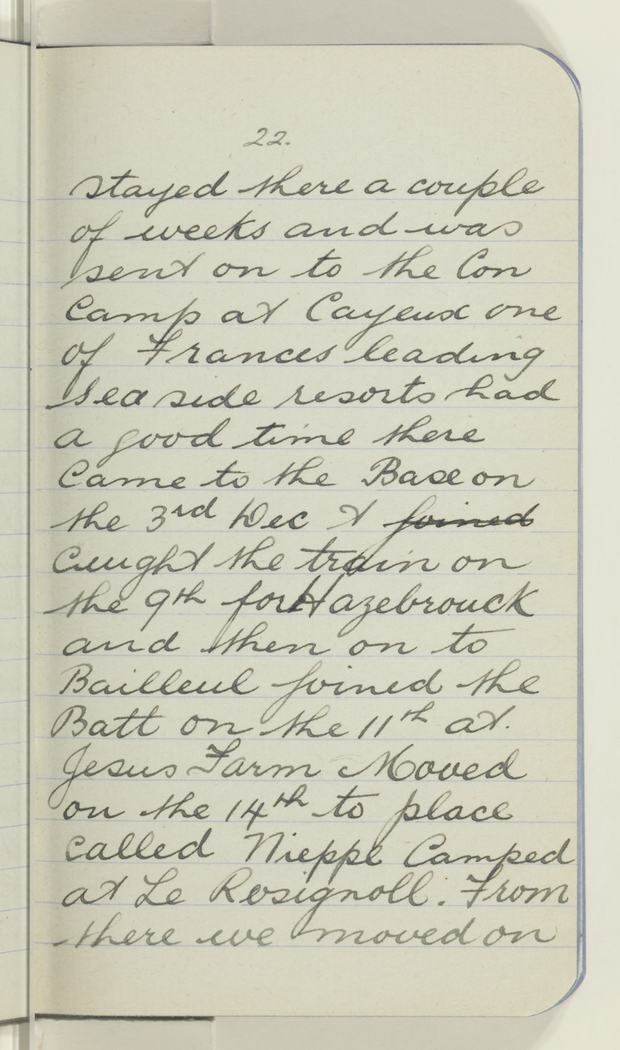 22.
stayed there a couple
of weeks and was
sent on to the Con
Camp at Cayeux one
of Frances leading
sea side resorts had
a good time there
Came to the Base on
the 3rd Dec & joined
Caught the train on
the 9th for Hazebrouck
and then on to
Bailleul joined the
Batt on the 11th at.
Jesus Farm Moved
on the 14th to place
called Nieppe Camped
at Le Rosignoll. From
there we moved on